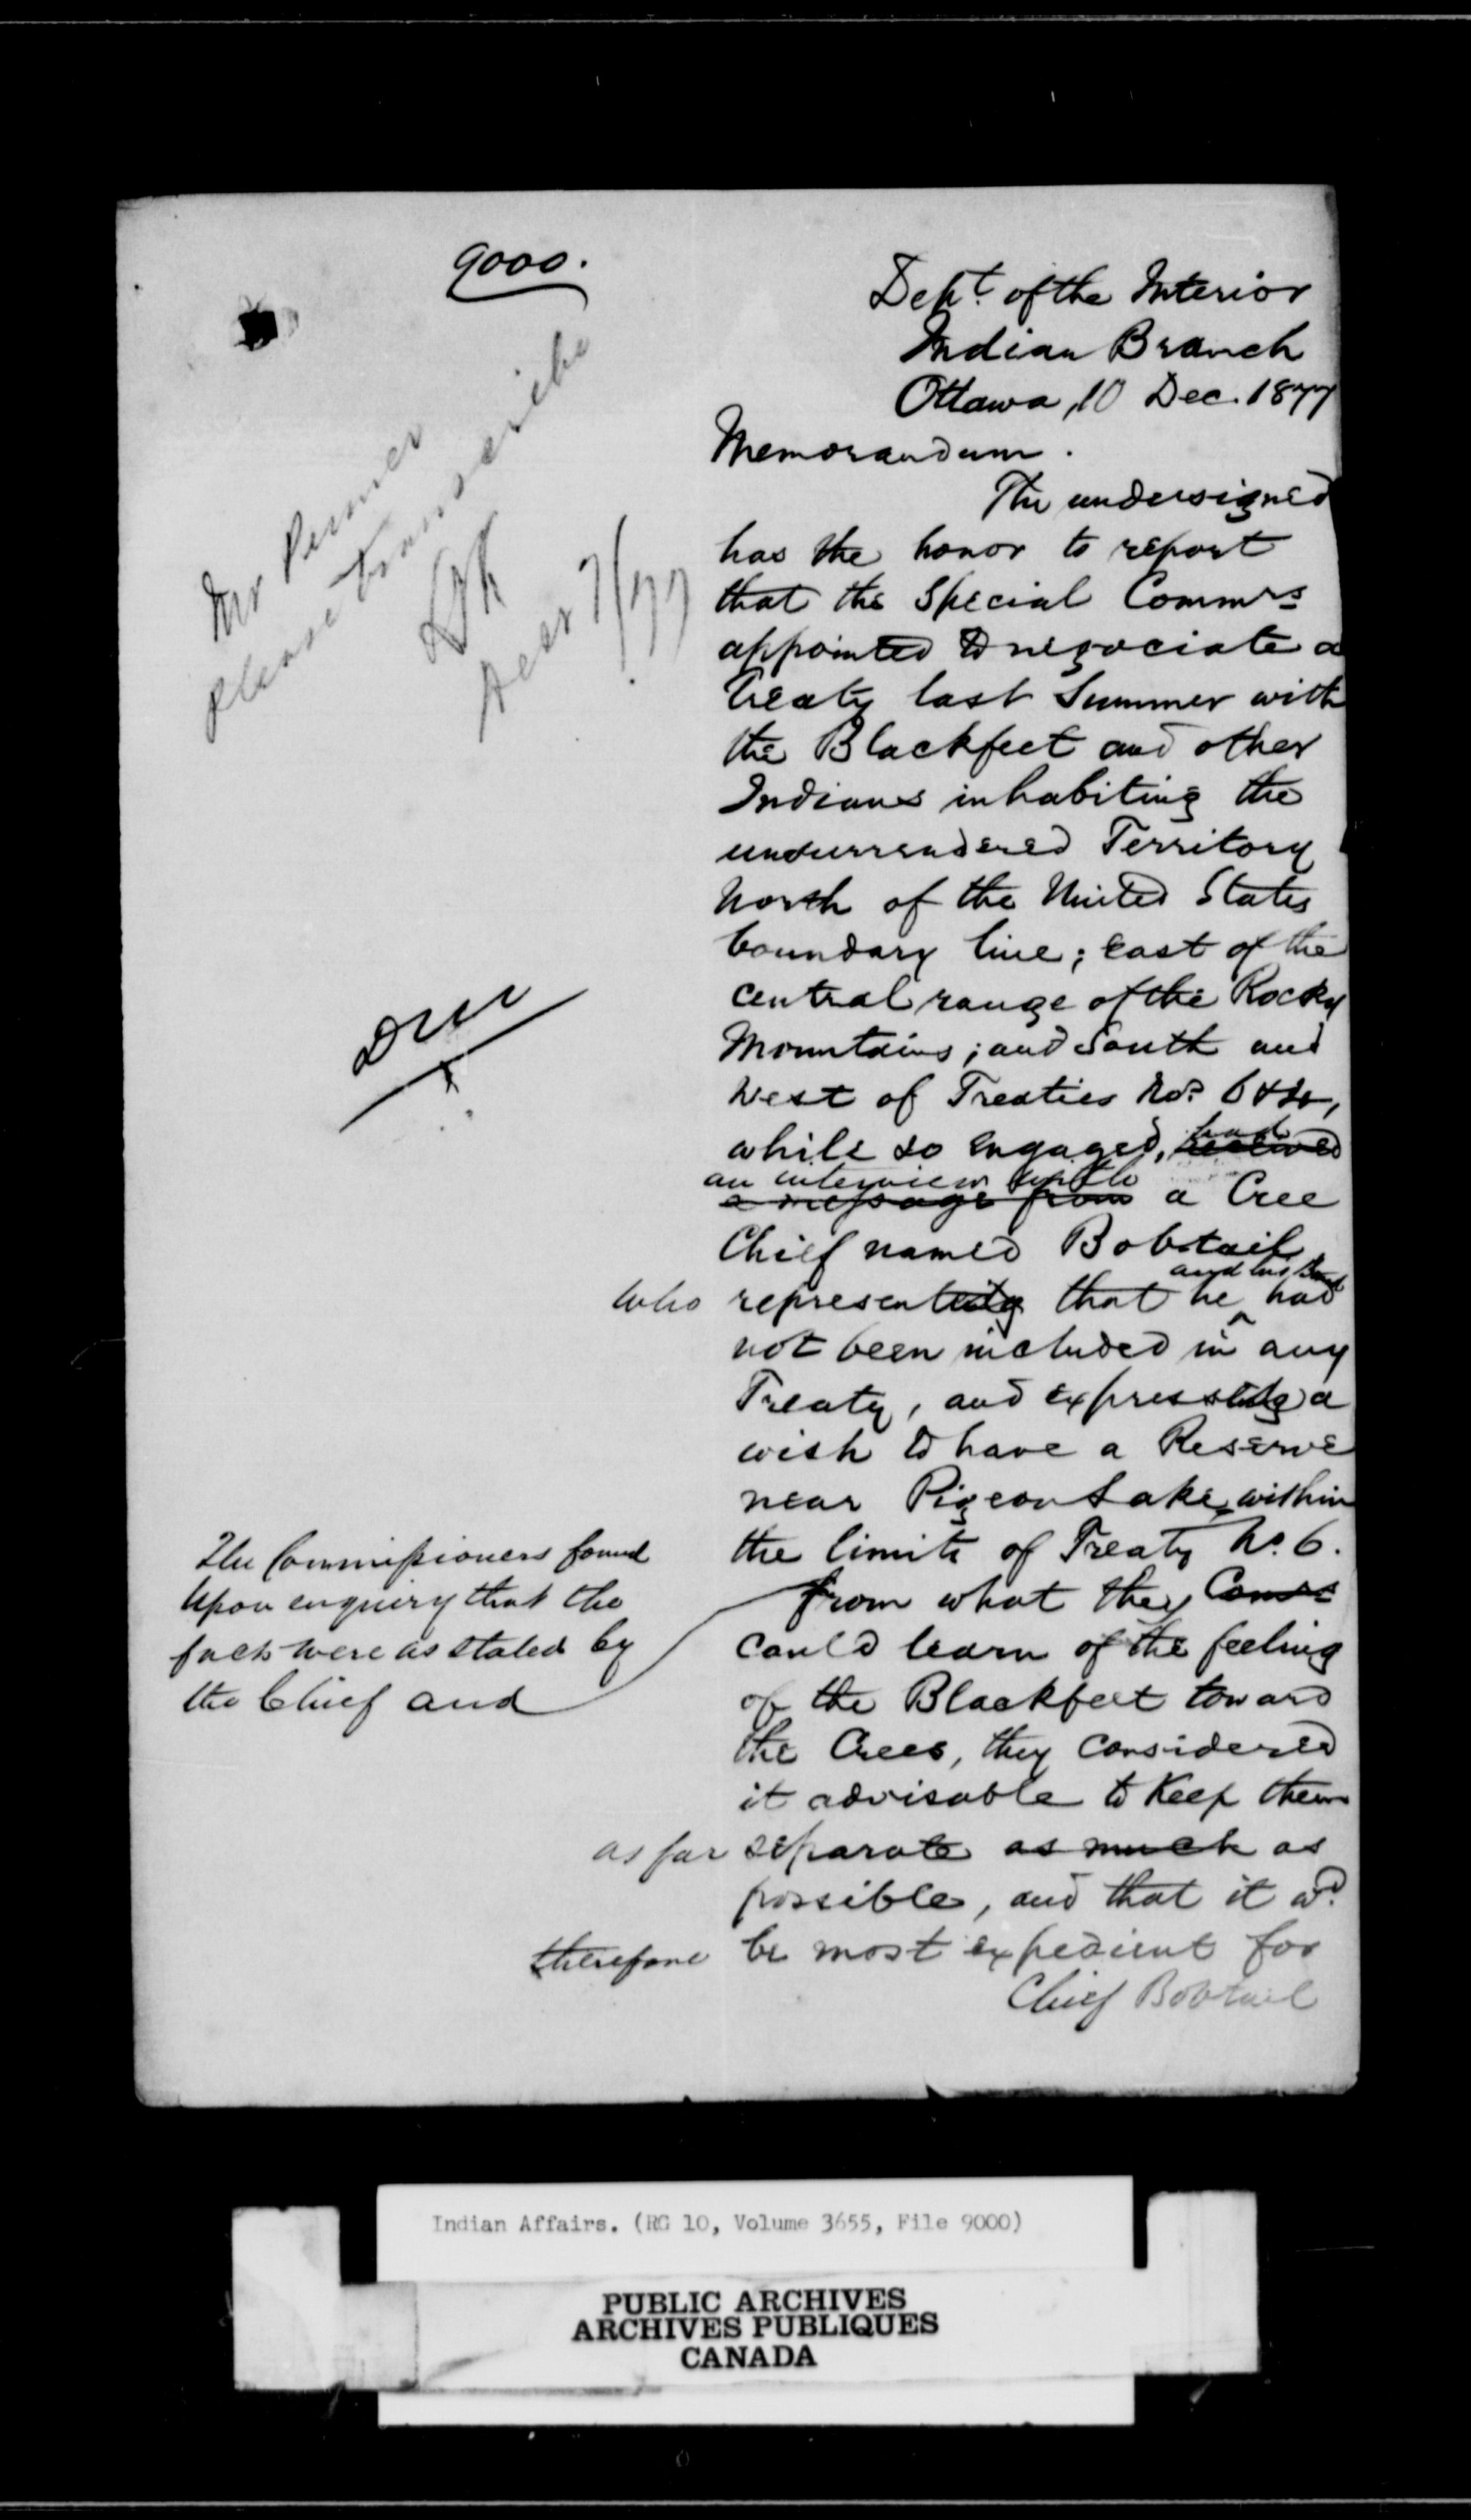 9000.
Dept. of the Interior
Indian Branch
Ottawa, 10 Dec. 1877
Mr
please transcribe
Decr 7/77
Memorandum.
The undersigned
has the honor to report
that the Special Commrs
appointed to negociate a
Treaty last Summer with
the Blackfeet and other
Indians inhabiting the
unsurrendered Territory
North of the United States
boundary line; east of the
central range of the Rocky
Mountains; and South and
West of Treaties Nos. 6 & 4,
while so engaged, received had
an interview with
a message from a Cree
Chief named Bobtail,
and his Band
who representing that he had
not been included in any
Treaty, and expressing a
wish to have a Reserve
near Pigeon Lake, within
the limits of Treaty No. 6.
The Commissioners found
upon enquiry that the
facts were as stated by
the Chief and
from what they Comrs
could learn of the feeling
of the Blackfeet toward
the Crees, they considered
it advisable to keep them
as far separate as much as
possible, and that it wd.
therefore be most expedient for
Chief Bobtail
Indian Affairs. (RG 10, Volume 3655, File 9000)
PUBLIC ARCHIVES
ARCHIVES PUBLIQUES
CANADA